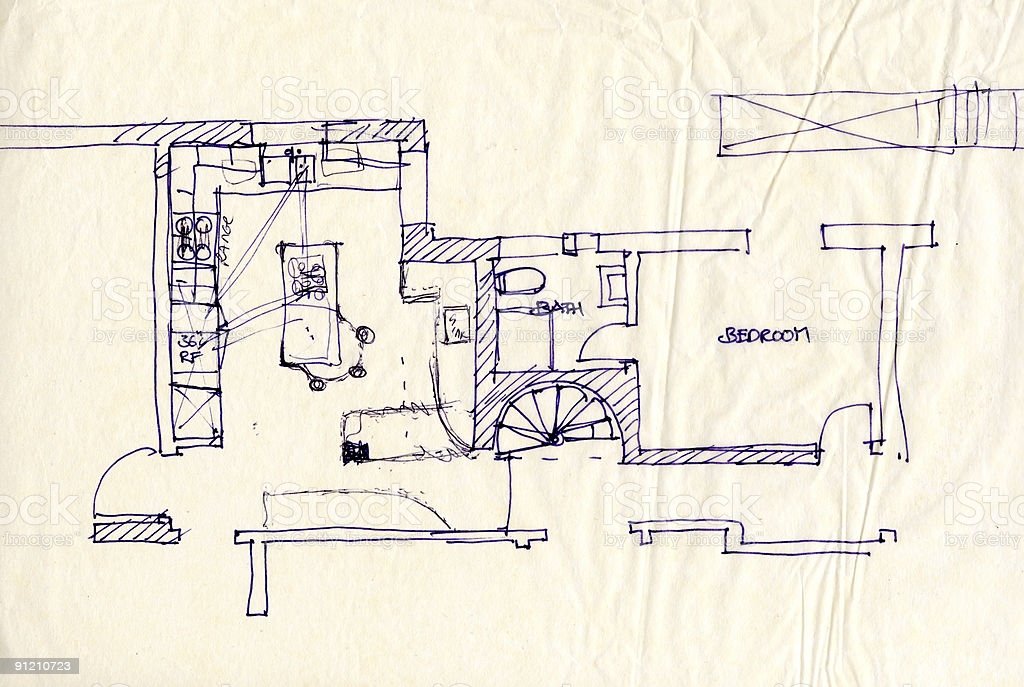 RANGE
36"
RF
BATH
BEDROOM
iStock
by Getty Images™
91210723